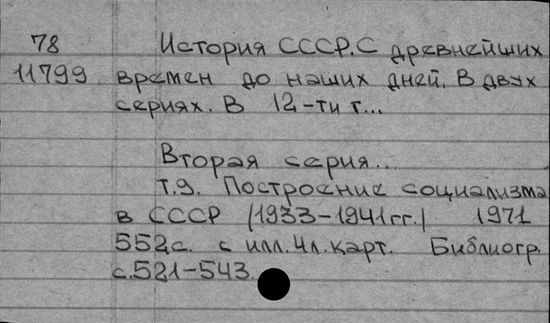 78 История СССР. С древнейших
11799 времен до наших дней. В двух
сериях. В 12-ти т...
Вторая серия...
т.9. Построение социализма
в СССР (1933-1941гг.) 1971
552с. с илл. 4л. карт. Библиогр.
с.521-543.